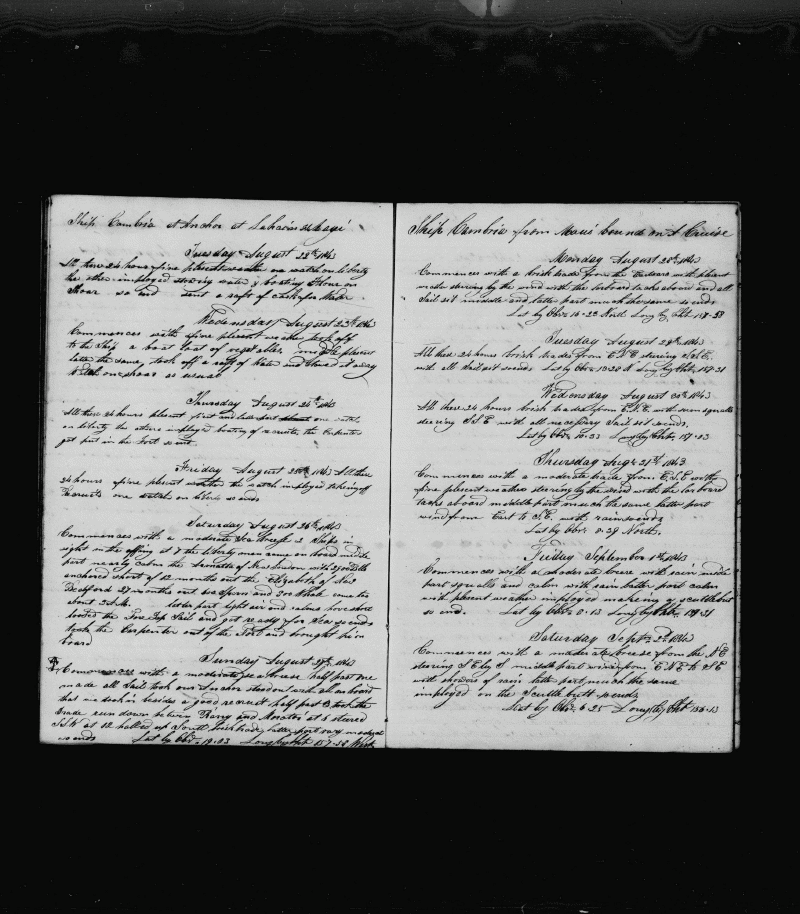 Ship Cambria at Anchor at Lahaina
Tuesday August 22th 1843
All these 24 hours fine plesent weather one watch on liberty
the other imployed stowing water & boating Flour on
Shoar so end sent a raft of casks for Water
Wedensday August 23th 1843
Commences with fine plesent weather took off
to the Ship a boat load of vegatables middle plesent
latter the same, took off a raft of Water and stowed it away
Watch on shoar as usual
Thursday August 24th 1843
All these 24 hours plesent first and latter part one watch
on liberty the others imployed boating of recruits, the Carpenter
got put in the Fort so ends
Friday August 25th 1843 All these
24 hours fine plesent weather the watch imployed takeing off
Recruits one watch on liberty so ends
Saturday August 26th 1843
Commences with a moderate Sea breeze 2 Ships in
sight in the offing at 7 the liberty men came on board middle
part nearly calm the of New London with 2700 bbls
anchored short of 12 months out the Elizabeth of New
Bedford 27 months out 600 Sperm and 200 Whale came in
about 3 A.M. latter part light air and calms hove short
loosed the Fore Top Sail and got ready for Sea so ends
took the Carpenter out of the Fort and brought him on
board
Sunday August 27th 1843
Commences with a moderate sea breese half past one
made all Sail took our Anchor stood out with all on board
that we took in besides a good recruit half past 3 took the
trade run down between Rany and Morotoi at 5 steered
S.S.W at 12 halled up South brisk trade latter part very moderate
so ends Lat by Obs. 19-03 Long by Cht 157-58 West
Ship Cambria from Maui bound on A Cruise
Monday August 28th 1843
Commences with a brisk trade from the Eastward with plesent
weather steering by the wind with the larboard tacks aboard and all
Sail set middle and latter part much the same so ends
Lat by Obs. 16-22 North Long by Cht. 157-58
Tuesday August 29th 1843
All these 24 hours brisk trades from E.N.E steering S.S.E.
with all sail set so ends Lat by Obs. 13-28 N Long by Cht. 157-31
Wedensday August 30th 1843
All these 24 hours brisk trades from E.N.E. with some squalls
steering S.S.E with all necessary Sail set so ends.
Lat by Obs. 10-33 Long by Cht. 157-03
Thursday Augt. 31st 1843
Commences with a moderate trade from E.S.E with
fine plesent weather steering by the wind with the larboard
tacks aboard middle part much the same latter part
wind from East to S.E. with rain so ends
Lat by Obs. 8-29 North.
Friday September 1th 1843
Commences with a moderate breese with rain middle
part squalls and calm with rain latter part calm
with plesent weather imployed makeing a scuttlebut
so ends. Lat by Obs. 8-13 Long by Cht. 157-31
Saturday Sept. 2d 1843
Commences with a moderate breese from the N.E
steering S.E by S middle part wind from E.N.E to S.E
with showers of rain latter part much the same
imployed on the Scuttle butt so ends
Lat by Obs. 6-25 Long by Cht 156-13